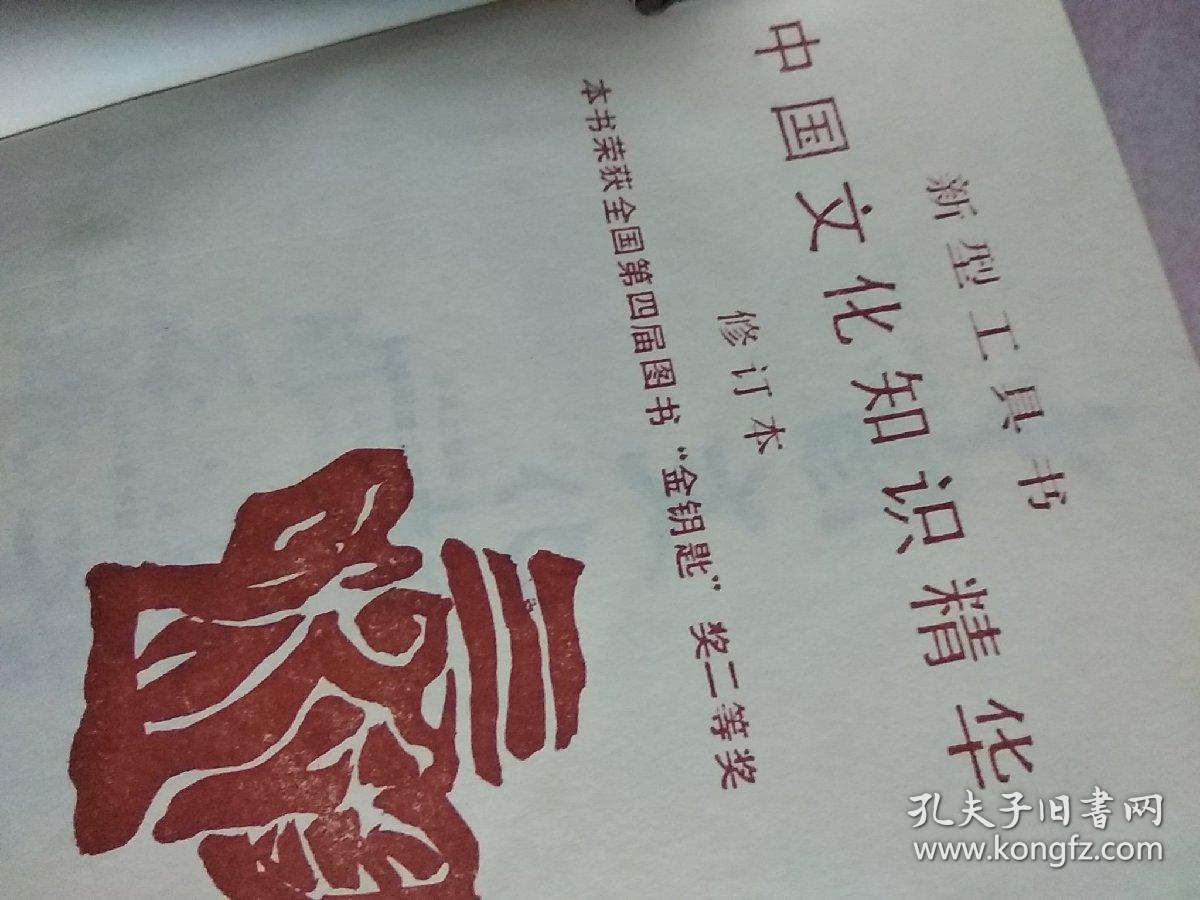 新型工具书
中国文化知识精华
修订本
本书荣获全国第四届图书“金钥匙”奖二等奖
孔夫子旧書网
www.kongfz.com